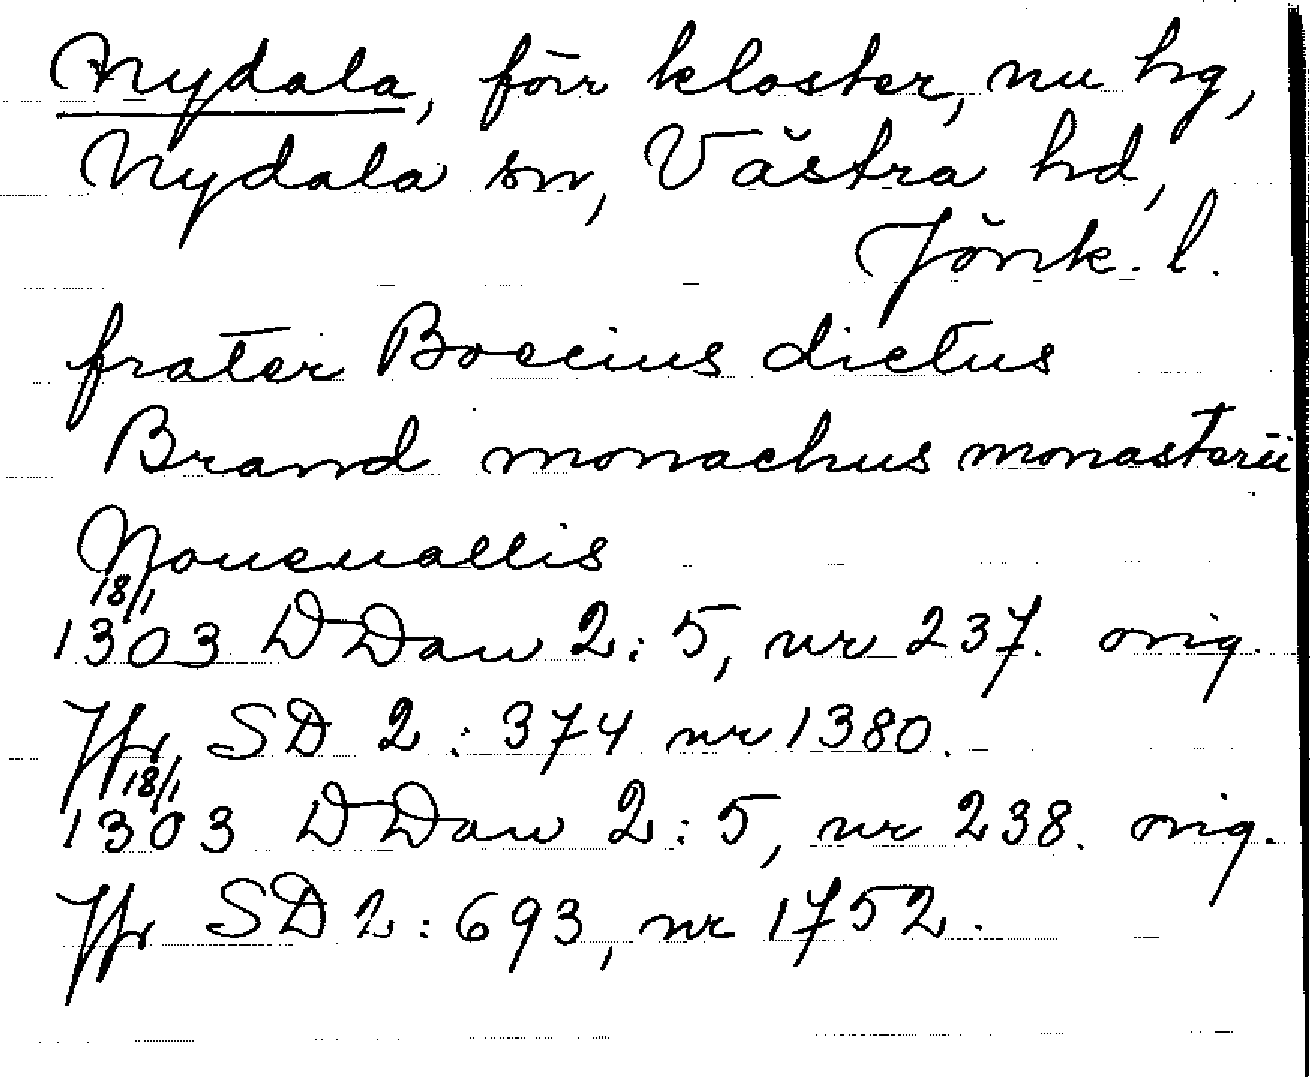 Nydala, förr kloster, nu hg,
Nydala sn, Västra hd,
Jönk. l.
frater Boecius dictus
Brand monachus monasterii
Noueuallis
18/1
1303 DDan 2:5, nr 237. orig.
Jfr SD 2:374 nr 1380.
18/1
1303 DDan 2:5, nr 238. orig.
Jfr SD 2:693, nr 1752.